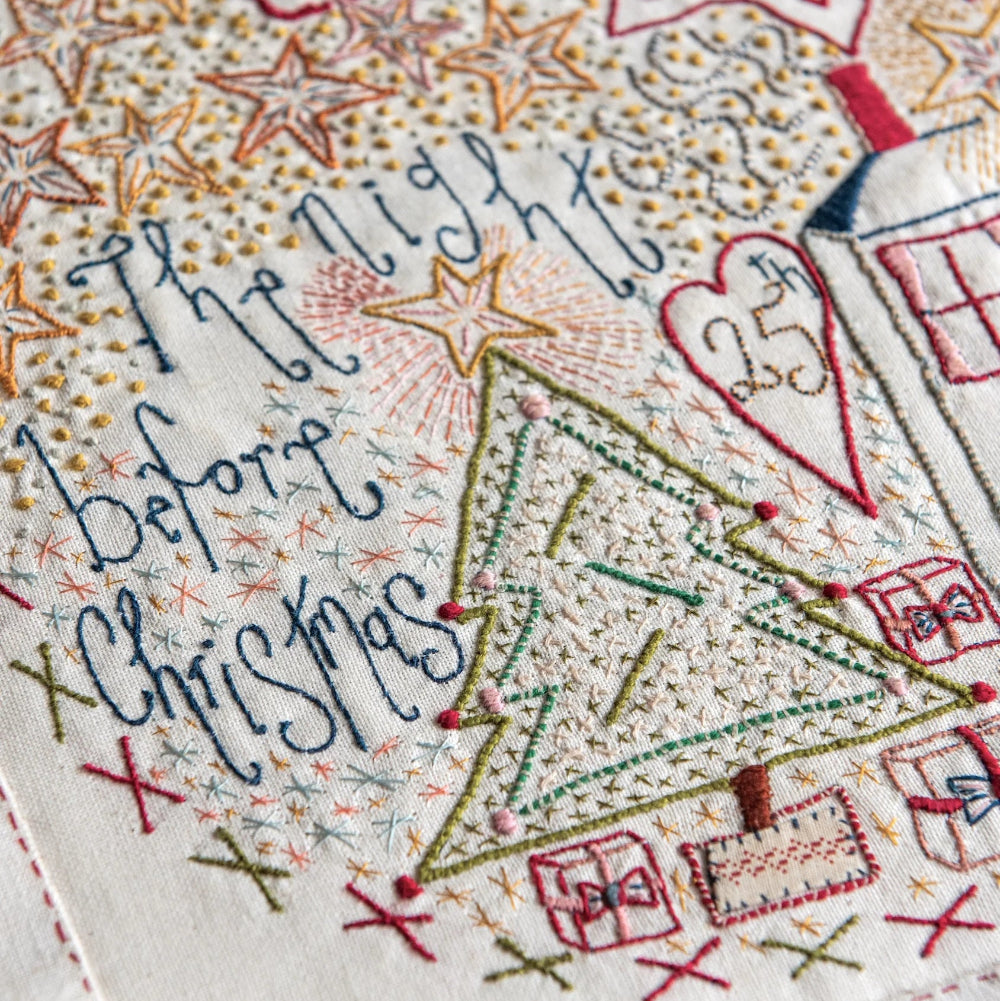 The night
before
Christmas
25th